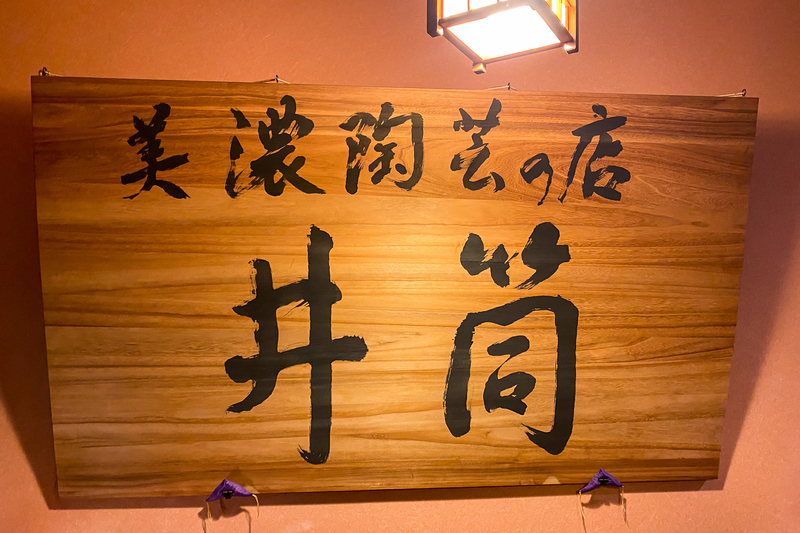 美濃陶芸の店
井筒